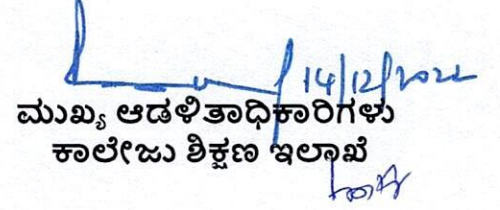 14/12/2022
ಮುಖ್ಯ ಆಡಳಿತಾಧಿಕಾರಿಗಳು
ಕಾಲೇಜು ಶಿಕ್ಷಣ ಇಲಾಖೆ